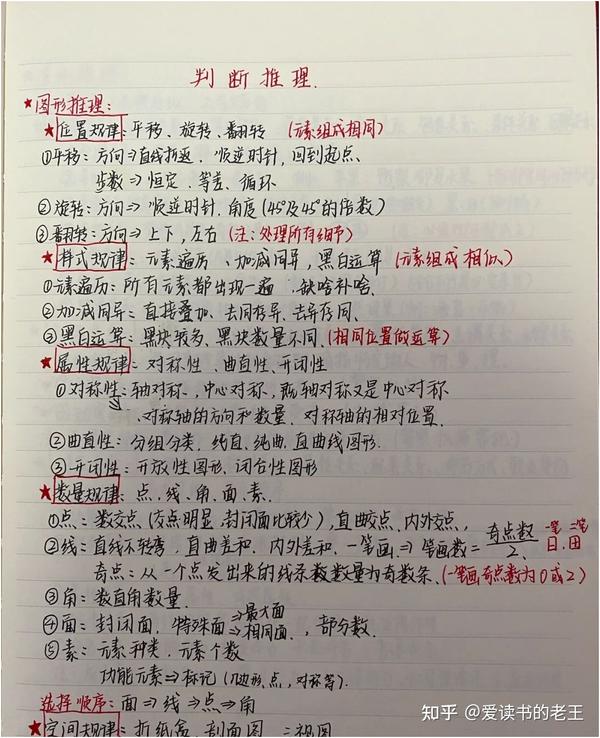 判断推理.
★图形推理:
★位置规律:平移、旋转、翻转 (元素组成相同)
①平移:方向⇒直线折返、顺逆时针,回到起点.
步数⇒恒定、等差、循环
②旋转:方向⇒顺逆时针.角度(45°及45°的倍数)
③翻转:方向⇒上下,左右 (注:处理所有细节)
★样式规律:元素遍历、加减同异,黑白运算 (元素组成相似)
①元素遍历:所有元素都出现一遍.缺啥补啥.
②加减同异:直接叠加、去同存异、去异存同.
③黑白运算:黑块较多、黑块数量不同.(相同位置做运算)
★属性规律:对称性、曲直性、开闭性
①对称性:轴对称,中心对称,既轴对称又是中心对称
对称轴的方向和数量.对称轴的相对位置.
②曲直性:分组分类.纯直、纯曲、直曲线图形.
③开闭性:开放性图形、闭合性图形
★数量规律:点、线、角、面、素.
①点:数交点(交点明显、封闭面比较少),直曲交点、内外交点,
②线:直线不转弯.直曲差和.内外差和、一笔画⇒笔画数=奇点数/2. 一笔 二笔 日、田
奇点:从一个点发出来的线条数数量为奇数条.(一笔画奇点数为0或2)
③角:数直角数量.
④面:封闭面.特殊面⇒最大面 ⇒相同面,部分数.
⑤素:元素种类.元素个数
功能元素⇒标记(几边形、点,对称等).
选择顺序:面⇒线⇒点⇒角
★空间规律:折纸盒、剖面图、三视图
知乎 @爱读书的老王